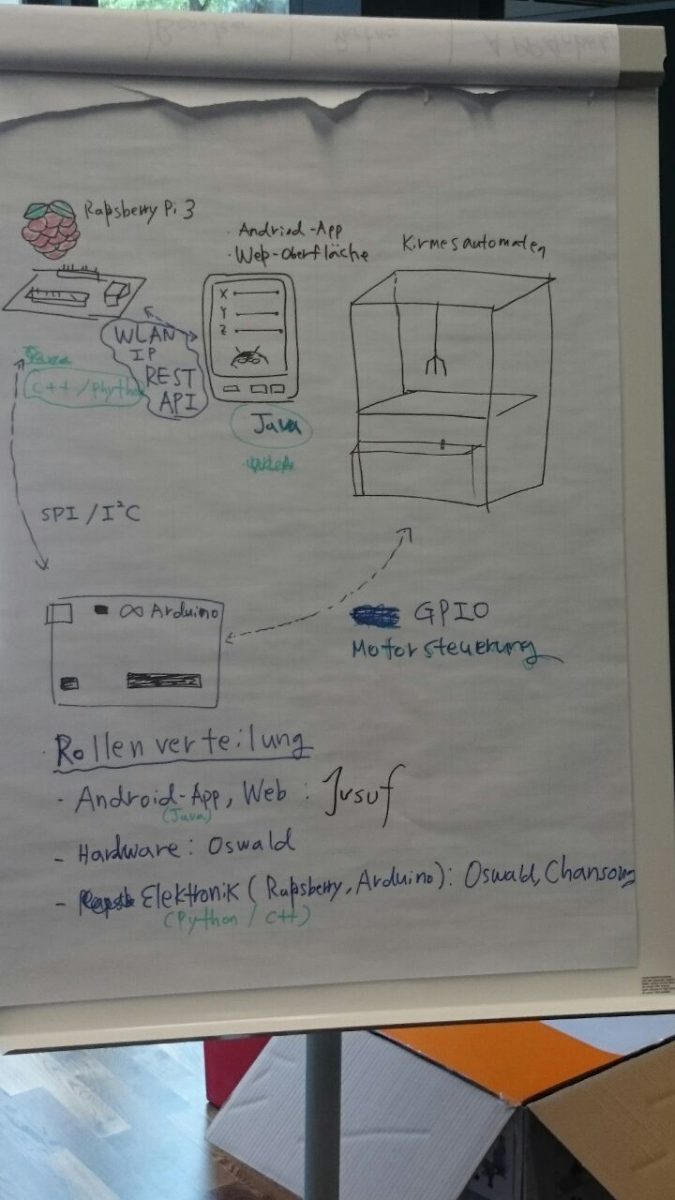 Rapsberry Pi 3
· Andried-App
· Web-Oberfläche
Kirmesautomaten
X
Y
Z
WLAN
IP
REST
API
Java
C++ / Phython
Java
SPI / I²C
∞ Arduino
GPIO
Motorsteuerung
Rollenverteilung
- Android-App, Web : Jusuf
(Java)
- Hardware : Oswald
- Elektronik ( Rapsberry, Arduino) : Oswald, Chansong
(Python / C++)